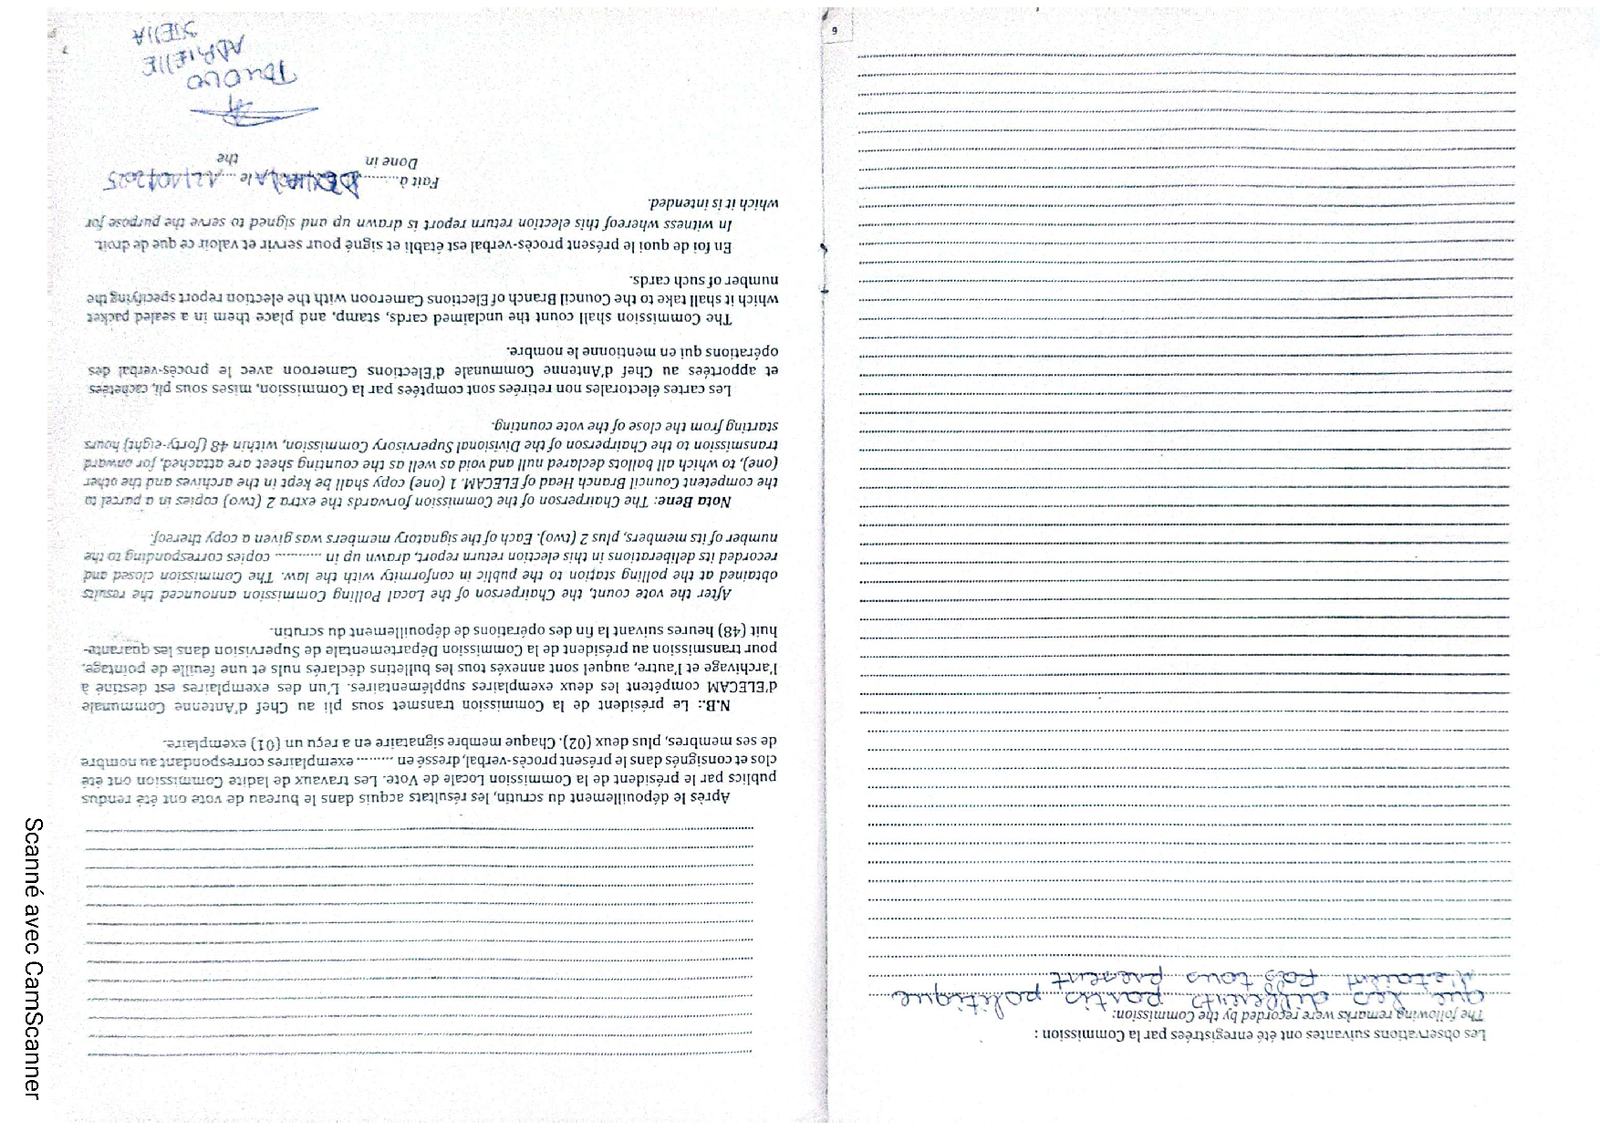 Les observations suivantes ont été enregistrées par la Commission :
The following remarks were recorded by the Commission:
que les differents partis politique
n'etaient pas tous present
6
Après le dépouillement du scrutin, les résultats acquis dans le bureau de vote ont été rendus
publics par le président de la Commission Locale de Vote. Les travaux de ladite Commission ont été
clos et consignés dans le présent procès-verbal, dressé en ......... exemplaires correspondant au nombre
de ses membres, plus deux (02). Chaque membre signataire en a reçu un (01) exemplaire.
N.B.: Le président de la Commission transmet sous pli au Chef d'Antenne Communale
d'ELECAM compétent les deux exemplaires supplémentaires. L'un des exemplaires est destiné à
l'archivage et l'autre, auquel sont annexés tous les bulletins déclarés nuls et une feuille de pointage,
pour transmission au président de la Commission Départementale de Supervision dans les quarante-
huit (48) heures suivant la fin des opérations de dépouillement du scrutin.
After the vote count, the Chairperson of the Local Polling Commission announced the results
obtained at the polling station to the public in conformity with the law. The Commission closed and
recorded its deliberations in this election return report, drawn up in ............ copies corresponding to the
number of its members, plus 2 (two). Each of the signatory members was given a copy thereof.
Nota Bene: The Chairperson of the Commission forwards the extra 2 (two) copies in a parcel to
the competent Council Branch Head of ELECAM. 1 (one) copy shall be kept in the archives and the other
(one), to which all ballots declared null and void as well as the counting sheet are attached, for onward
transmission to the Chairperson of the Divisional Supervisory Commission, within 48 (forty-eight) hours
starting from the close of the vote counting.
Les cartes électorales non retirées sont comptées par la Commission, mises sous pli, cachetées
et apportées au Chef d'Antenne Communale d'Elections Cameroon avec le procès-verbal des
opérations qui en mentionne le nombre.
The Commission shall count the unclaimed cards, stamp, and place them in a sealed packet
which it shall take to the Council Branch of Elections Cameroon with the election report specifying the
number of such cards.
En foi de quoi le présent procès-verbal est établi et signé pour servir et valoir ce que de droit.
In witness whereof this election return report is drawn up and signed to serve the purpose for
which it is intended.
Fait à ......... le ... 12/10/2025
Done in the
ADRIELLE
STELLA
Scanné avec CamScanner